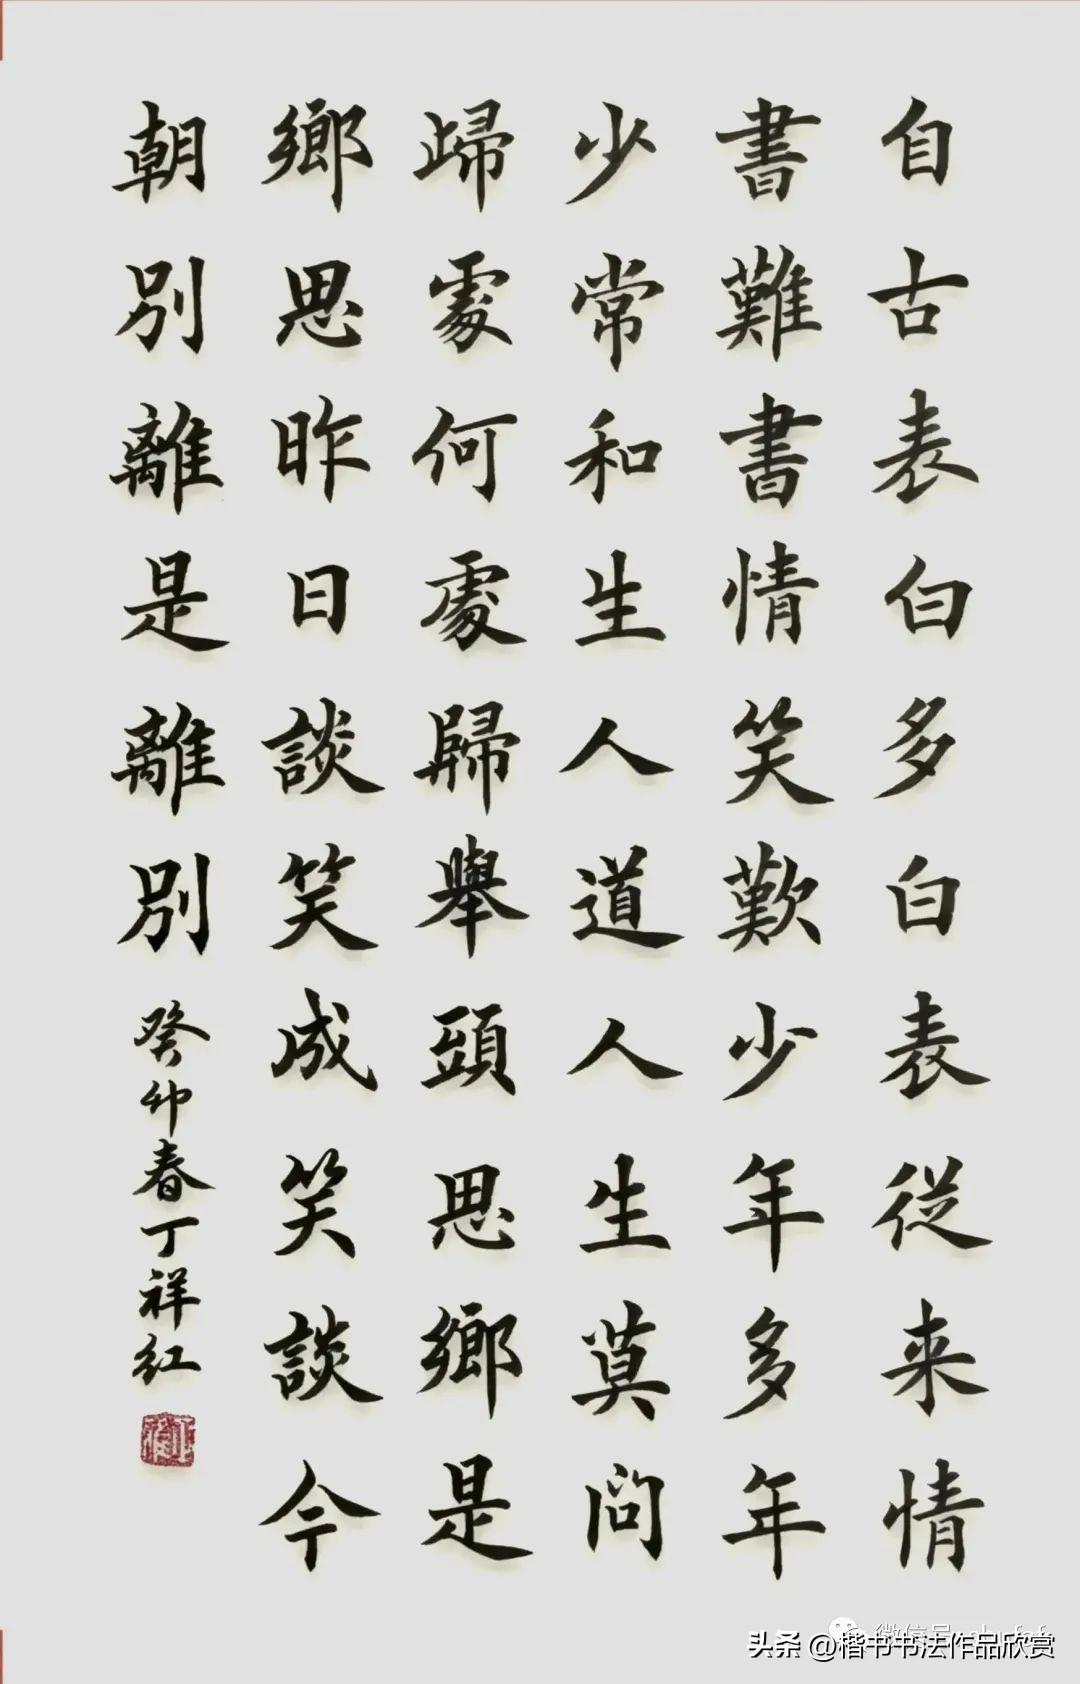 自古表白多白表從来情
書難書情笑歎少年多年
少常和生人道人生莫问
歸處何處歸舉頭思鄉是
鄉思昨日談笑成笑談今
朝别離是離别
癸卯春丁祥红
头条 @楷书书法作品欣赏
微信号